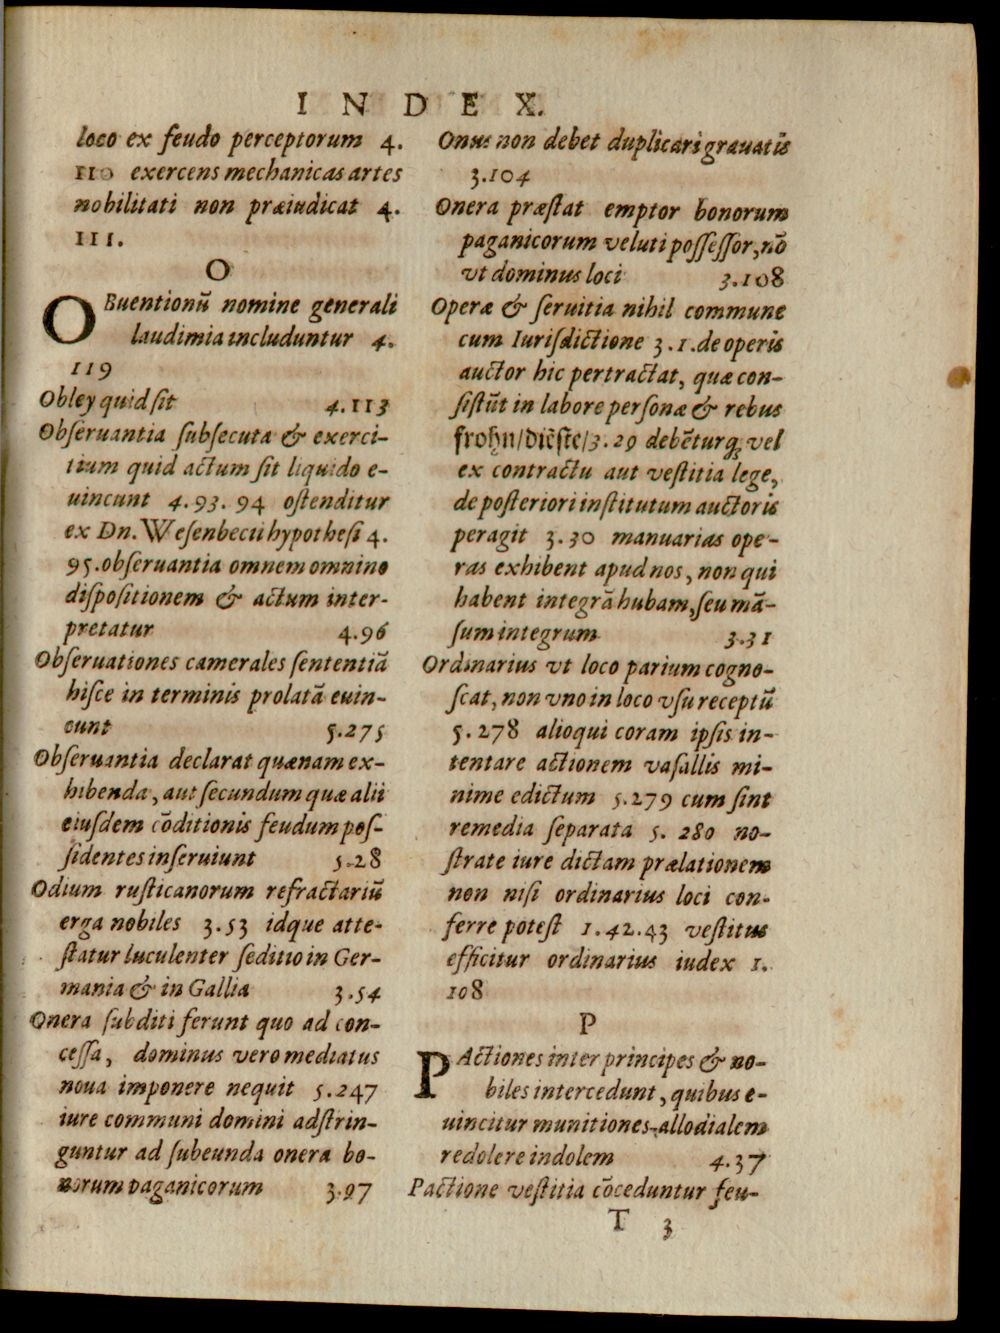 INDEX.
loco ex feudo perceptorum 4.
110 exercens mechanicas artes
nobilitati non præiudicat 4.
111.
O
OBuentionũ nomine generali
laudimia includuntur 4.
119
Obley quid ſit 4.113
Obſeruantia ſubſecuta & exerci-
tium quid actum ſit liquido e-
uincunt 4.93. 94 oſtenditur
ex Dn. Weſenbecii hypotheſi 4.
95. obſeruantia omnem omnino
diſpoſitionem & actum inter-
pretatur 4.96
Obſeruationes camerales ſententiã
hiſce in terminis prolatã euin-
cunt 5.275
Obſeruantia declarat quænam ex-
hibenda, aut ſecundum quæ alii
eiuſdem cõditionis feudum poſ-
ſidentes inſeruiunt 5.28
Odium ruſticanorum refractariũ
erga nobiles 3.53 idque atte-
ſtatur luculenter ſeditio in Ger-
mania & in Gallia 3.54
Onera ſubditi ferunt quo ad con-
ceſſa, dominus vero mediatus
noua imponere nequit 5.247
iure communi domini adſtrin-
guntur ad ſubeunda onera bo-
norum paganicorum 3.97
Onus non debet duplicari grauatis
3.104
Onera præſtat emptor bonorum
paganicorum veluti poſſeſſor, nõ
vt dominus loci 3.108
Operæ & ſeruitia nihil commune
cum Iuriſdictione 3.1. de operis
auctor hic pertractat, quæ con-
ſiſtũt in labore perſonæ & rebus
frohn/diẽſte/3.29 debẽturq; vel
ex contractu aut veſtitia lege,
de poſteriori inſtitutum auctoris
peragit 3.30 manuarias ope-
ras exhibent apud nos, non qui
habent integrã hubam, ſeu mã-
ſum integrum 3.31
Ordinarius vt loco parium cogno-
ſcat, non vno in loco vſu receptũ
5.278 alioqui coram ipſis in-
tentare actionem vaſallis mi-
nime edictum 5.279 cum ſint
remedia ſeparata 5. 280 no-
ſtrate iure dictam prælationem
non niſi ordinarius loci con-
ferre poteſt 1.42.43 veſtitus
efficitur ordinarius iudex 1.
108
P
PActiones inter principes & no-
biles intercedunt, quibus e-
uincitur munitiones allodialem
redolere indolem 4.37
Pactione veſtitia cõceduntur feu-
T 3